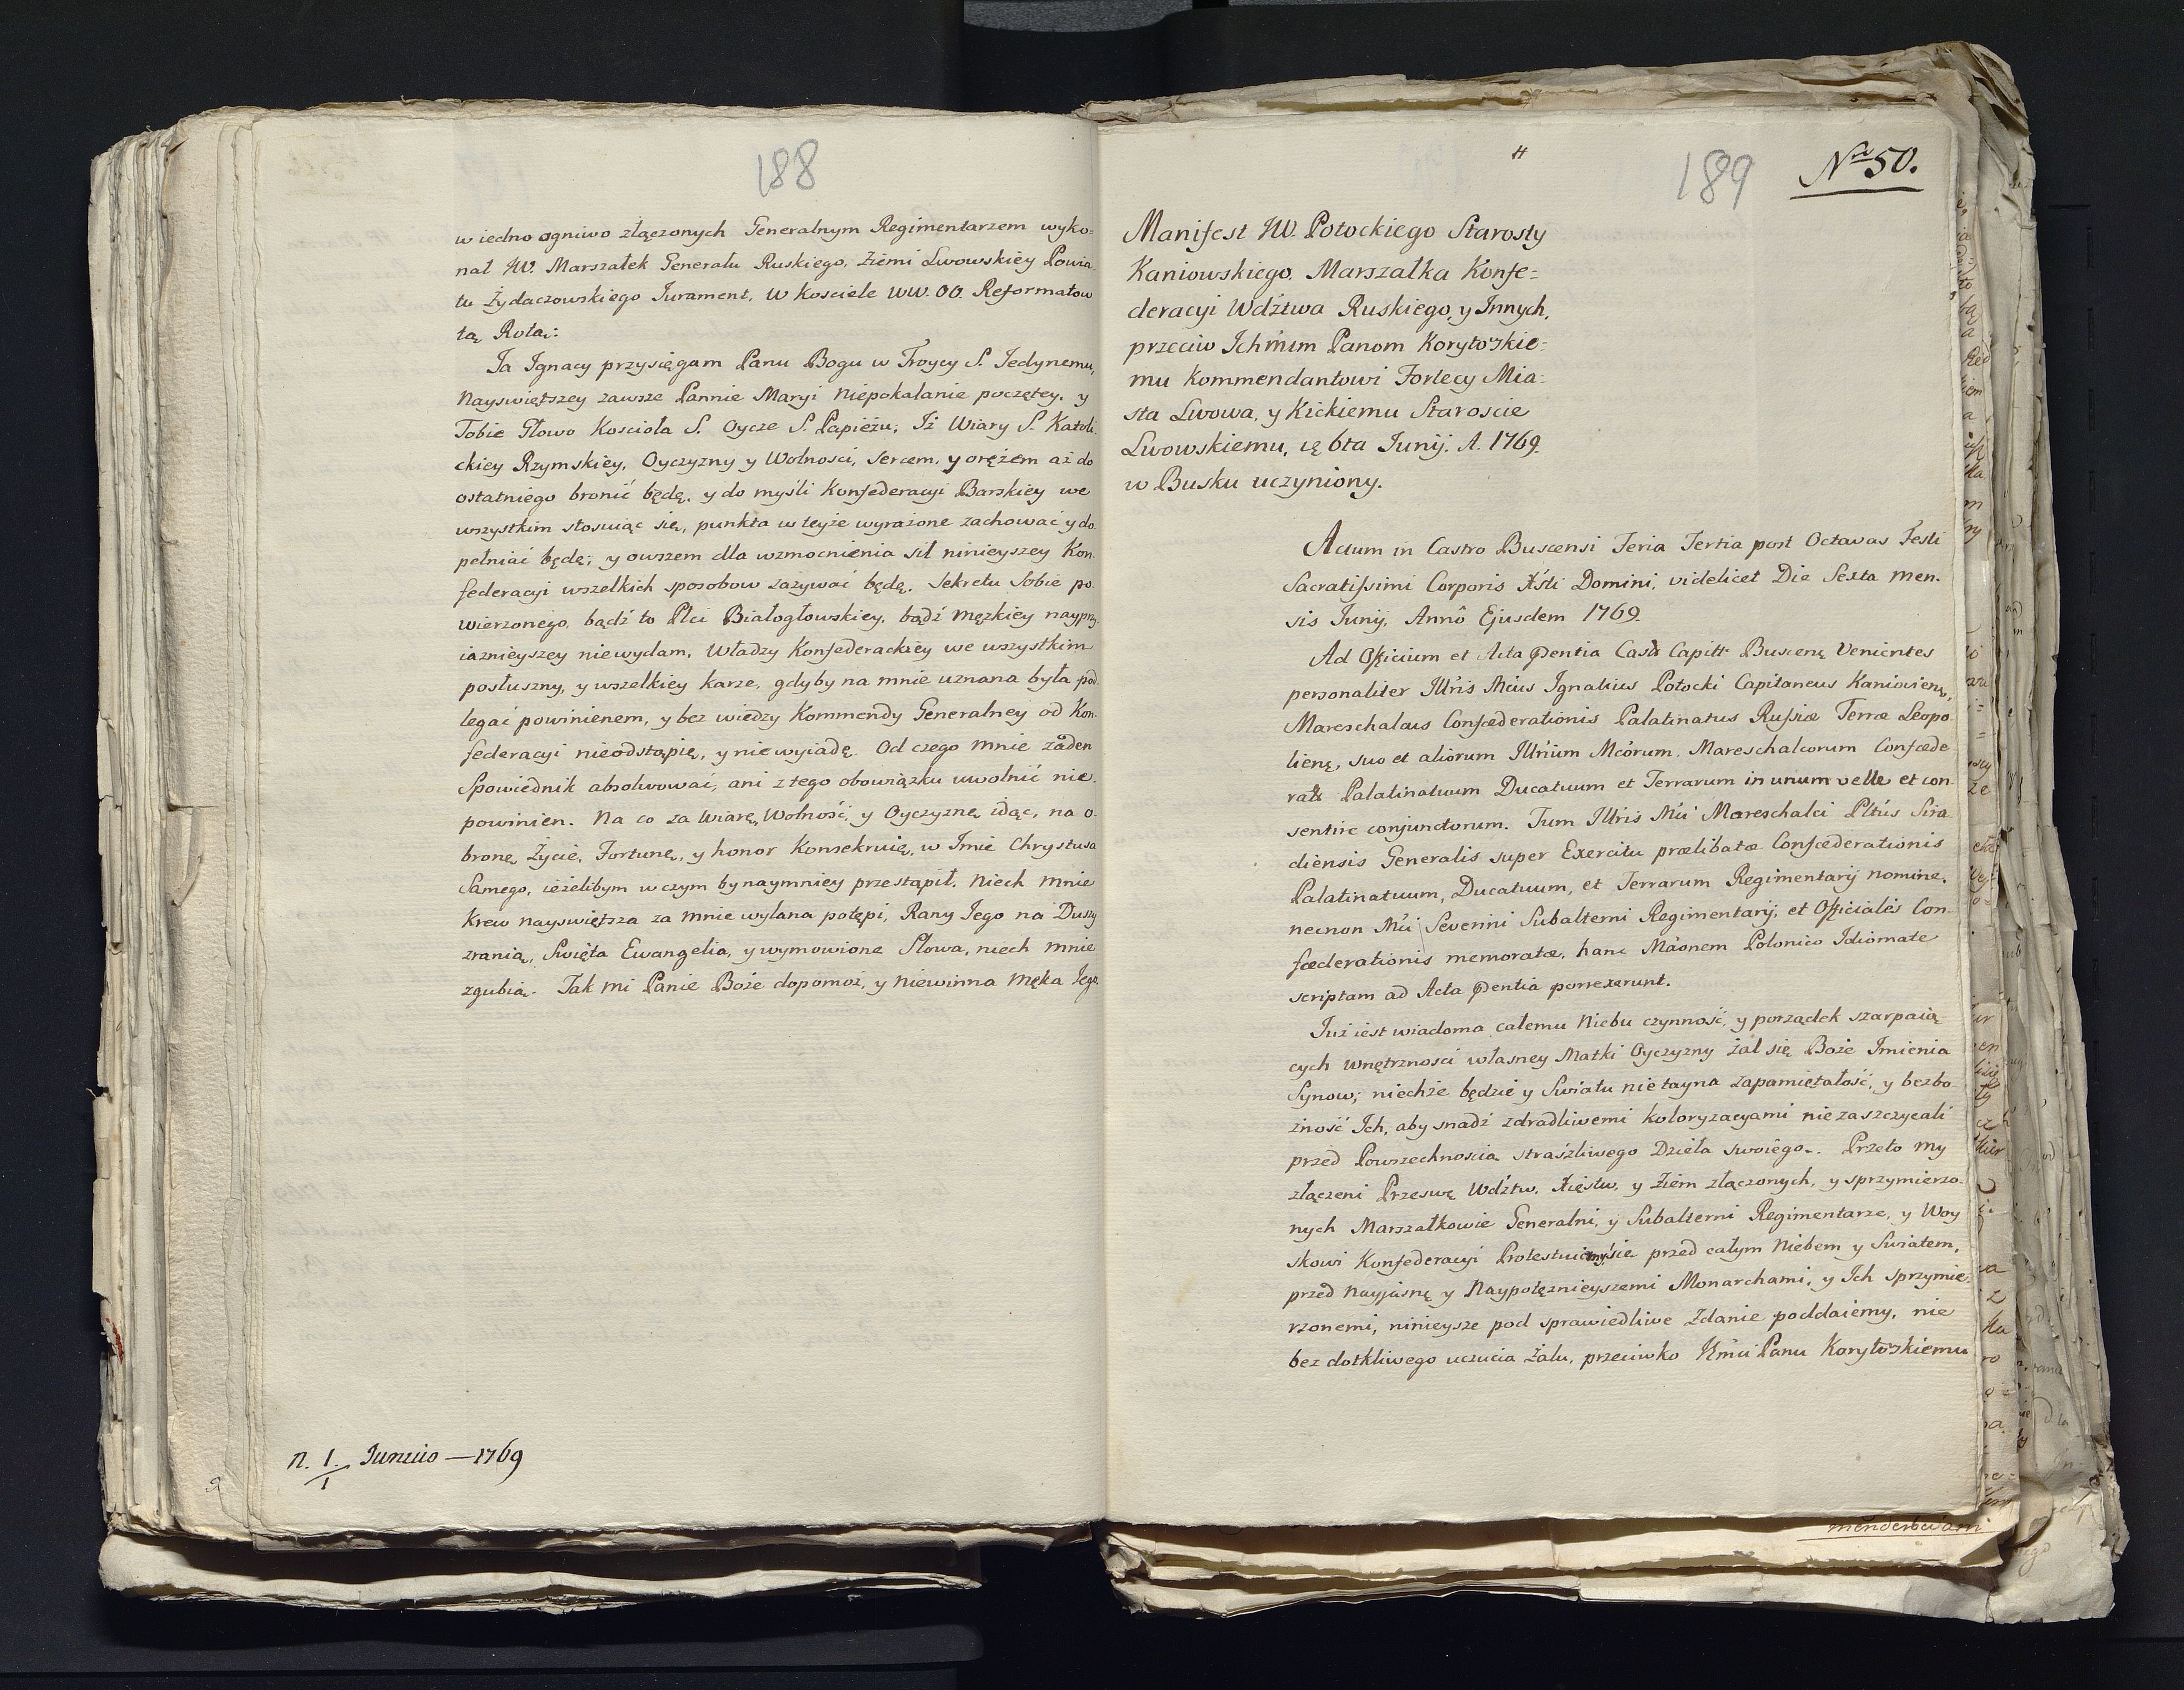 188
w iedno ogniwo złączonych Generalnym Regimentarzem wyko=
nał JW. Marszałek Generału Ruskiego, Ziemi Lwowskiéy Powia.
tu Żydaczowskiego Jurament, w Kosciele WW. OO. Reformatow
tą Rotą:
Ja Jgnacy przysięgam Panu Bogu w Troycy S. Jedynemu,
Nayswiętszey zawsze Pannie Maryi Niepokalanie poczętey, y
Tobie Głowo Koscioła S. Oycze S. Papieżu; Jż Wiary S. Katoli.
ckiey Rzymskiéy, Oyczyzny y Wolnosci, sercem, y orężem aż do
ostatniego bronić będę, y do myśli Konfederacyi Barskiéy we
wszystkim stosuiąc się, punkta w teyże wyrażone zachować y do.
pełniać będę; y owszem dla wzmocnienia sił ninieyszey Kon.
federacyi wszelkich sposobow zażywać będę. Sekretu Sobie po.
wierzonego, bądź to Płci Białogłowskiey, bądź męzkiéy nayprzy
iaznieyszey niewydam, Władzy Konfederackiéy we wszystkim
posłuszny, y wszelkiey karze, gdyby na mnie uznana była pod
legać powinienem, y bez wiedzy Kommendy Generalney od Kon.
federacyi nieodstąpię, y niewyiadę. Od czego mnie żaden
Spowiednik absolwować, ani z tego obowiązku uwolnić nie.
powinien. Na co za Wiarę, Wolność, y Oyczyznę idąc, na o.
bronę Życie, Fortunę, y honor Konsekruię, w Jmie Chrystusa
Samego, ieżelibym w czym bynaymniey przestąpił, Niech mnie
Krew nayswiętsza za mnie wylana potępi, Rany Jego na Duszy
zranią, Swięta Ewangelia, y wymowione Słowa, niech mnie
zgubią. Tak mi Panie Boże dopomoż, y niewinna Męka Jego.
n. 1. Junius — 1769
1
189
Nro 50.
Manifest JW. Potockiego Starosty
Kaniowskiego, Marszałka Konfe=
deracyi Wdźtwa Ruskiego, y Jnnych,
przeciw Jchmm Panom Korytoskie=
mu Kommendantowi Fortecy Mia=
sta Lwowa, y Kickiemu Staroscie
Lwowskiemu, 6ta Junij. A. 1769.
w Busku uczyniony.
Actum in Castro Buscensi Feria Tertia post Octavas Festi
Sacratissimi Corporis Xsti Domini, videlicet Die Sexta Men.
sis Junij, Annô Ejusdem 1769.
Ad Officium et Acta pentia Castr Capitt Buscenę Venientes
personaliter Illris Mcus Jgnatius Potocki Capitaneus Kaniovienę,
Mareschalcus Confœderationis Palatinatus Russiæ Terræ Leopo
lienę, suo et aliorum Illrium Mcorum. Mareschalcorum Confœde
ratt Palatinatuum Ducatuum et Terrarum in unum velle et con
sentire conjunctorum. Tum Illris Mci Mareschalci Pltus Sira
diensis Generalis super Exercitu prælibatæ Confœderationis
Palatinatuum, Ducatuum, et Terrarum Regimentarij nomine,
necnon Mci Severini Subalterni Regimentarij, et Officiales Con
fœderationis memoratæ, hanc Maonem Polonico Jdiomate
scriptam ad Acta pentia porrexerunt.
Już iest wiadoma całemu Niebu czynność, y porządek szarpaią
cych wnętrznosci własney Matki Oyczyzny żal się Boże Jmienia
Synow; niechże będzie y Swiatu nie tayna zapamiętałość, y bezbo
żność Jch, aby snadź zdradliwemi koloryzacyami niezaszczycali
przed Powszechnoscią straszliwego Dzieła swoiego. Przeto my
złączeni Przeswę Wdźtw, Xięstw, y Ziem złączonych, y sprzymierzo.
nych Marszałkowie Generalni, y Subalterni Regimentarze, y Woy
skowi Konfederacyi Protestuiemy się przed całym Niebem y Swiatem,
przed Nayjasnę y Naypotęznieyszemi Monarchami, y Jch sprzymie.
rzonemi, ninieysze pod sprawiedliwe Zdanie poddaiemy, nie
bez dotkliwego uczucia żalu, przeciwko Jmci Panu Korytoskiemu